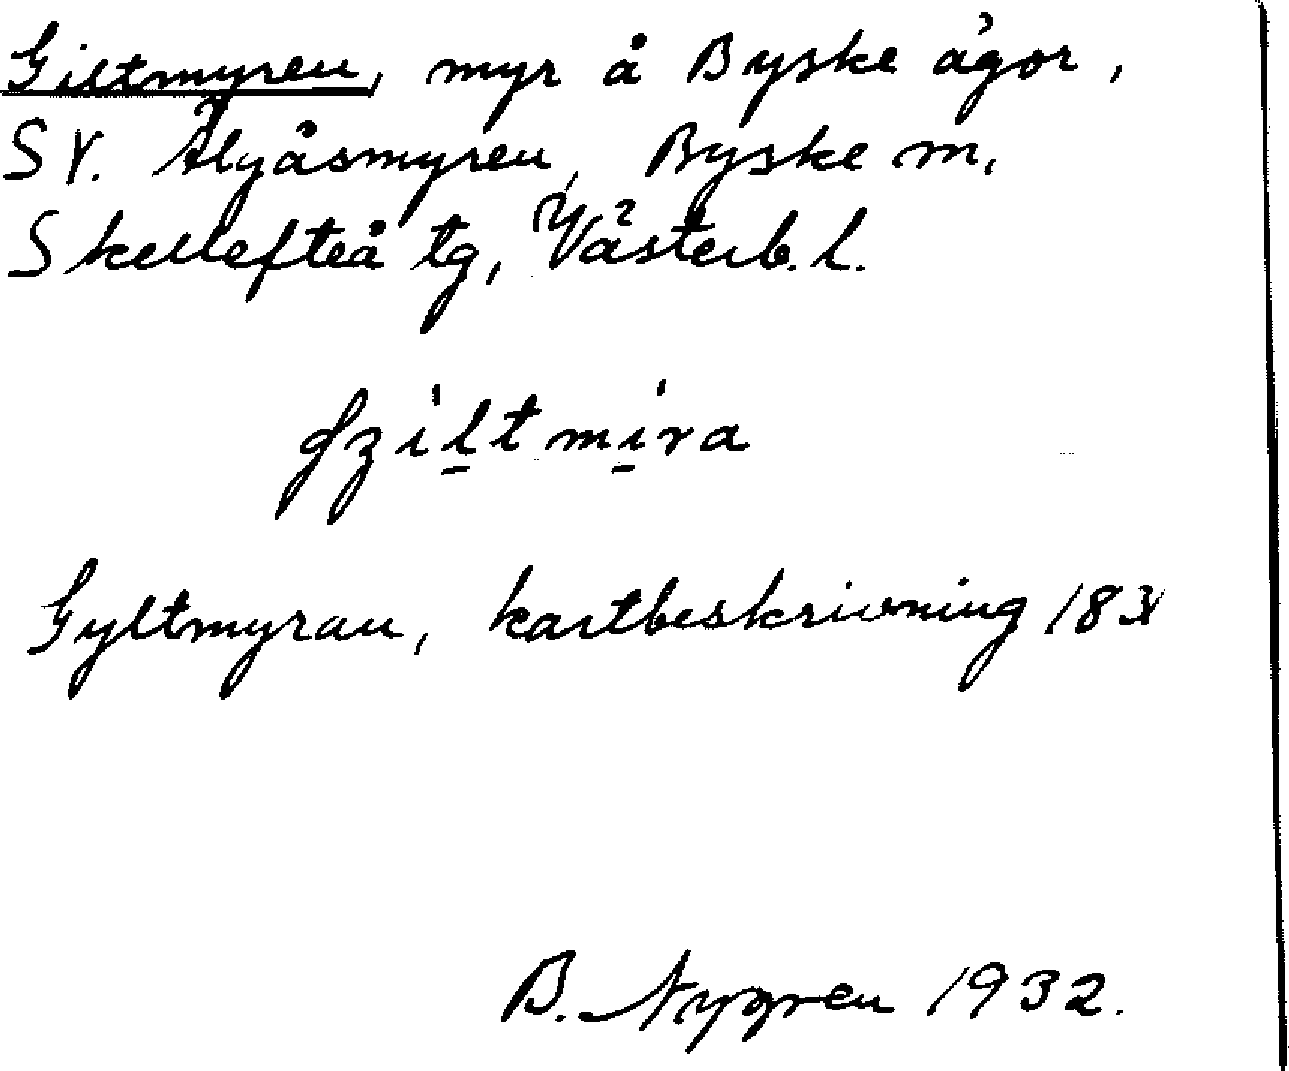 Giltmyren, myr å Byske ägor,
SV. Älgåsmyren, Byske sn,
Skellefteå tg, Västerb. l.
Gyltmyran, kartbeskrivning
B. Nygren 1932.